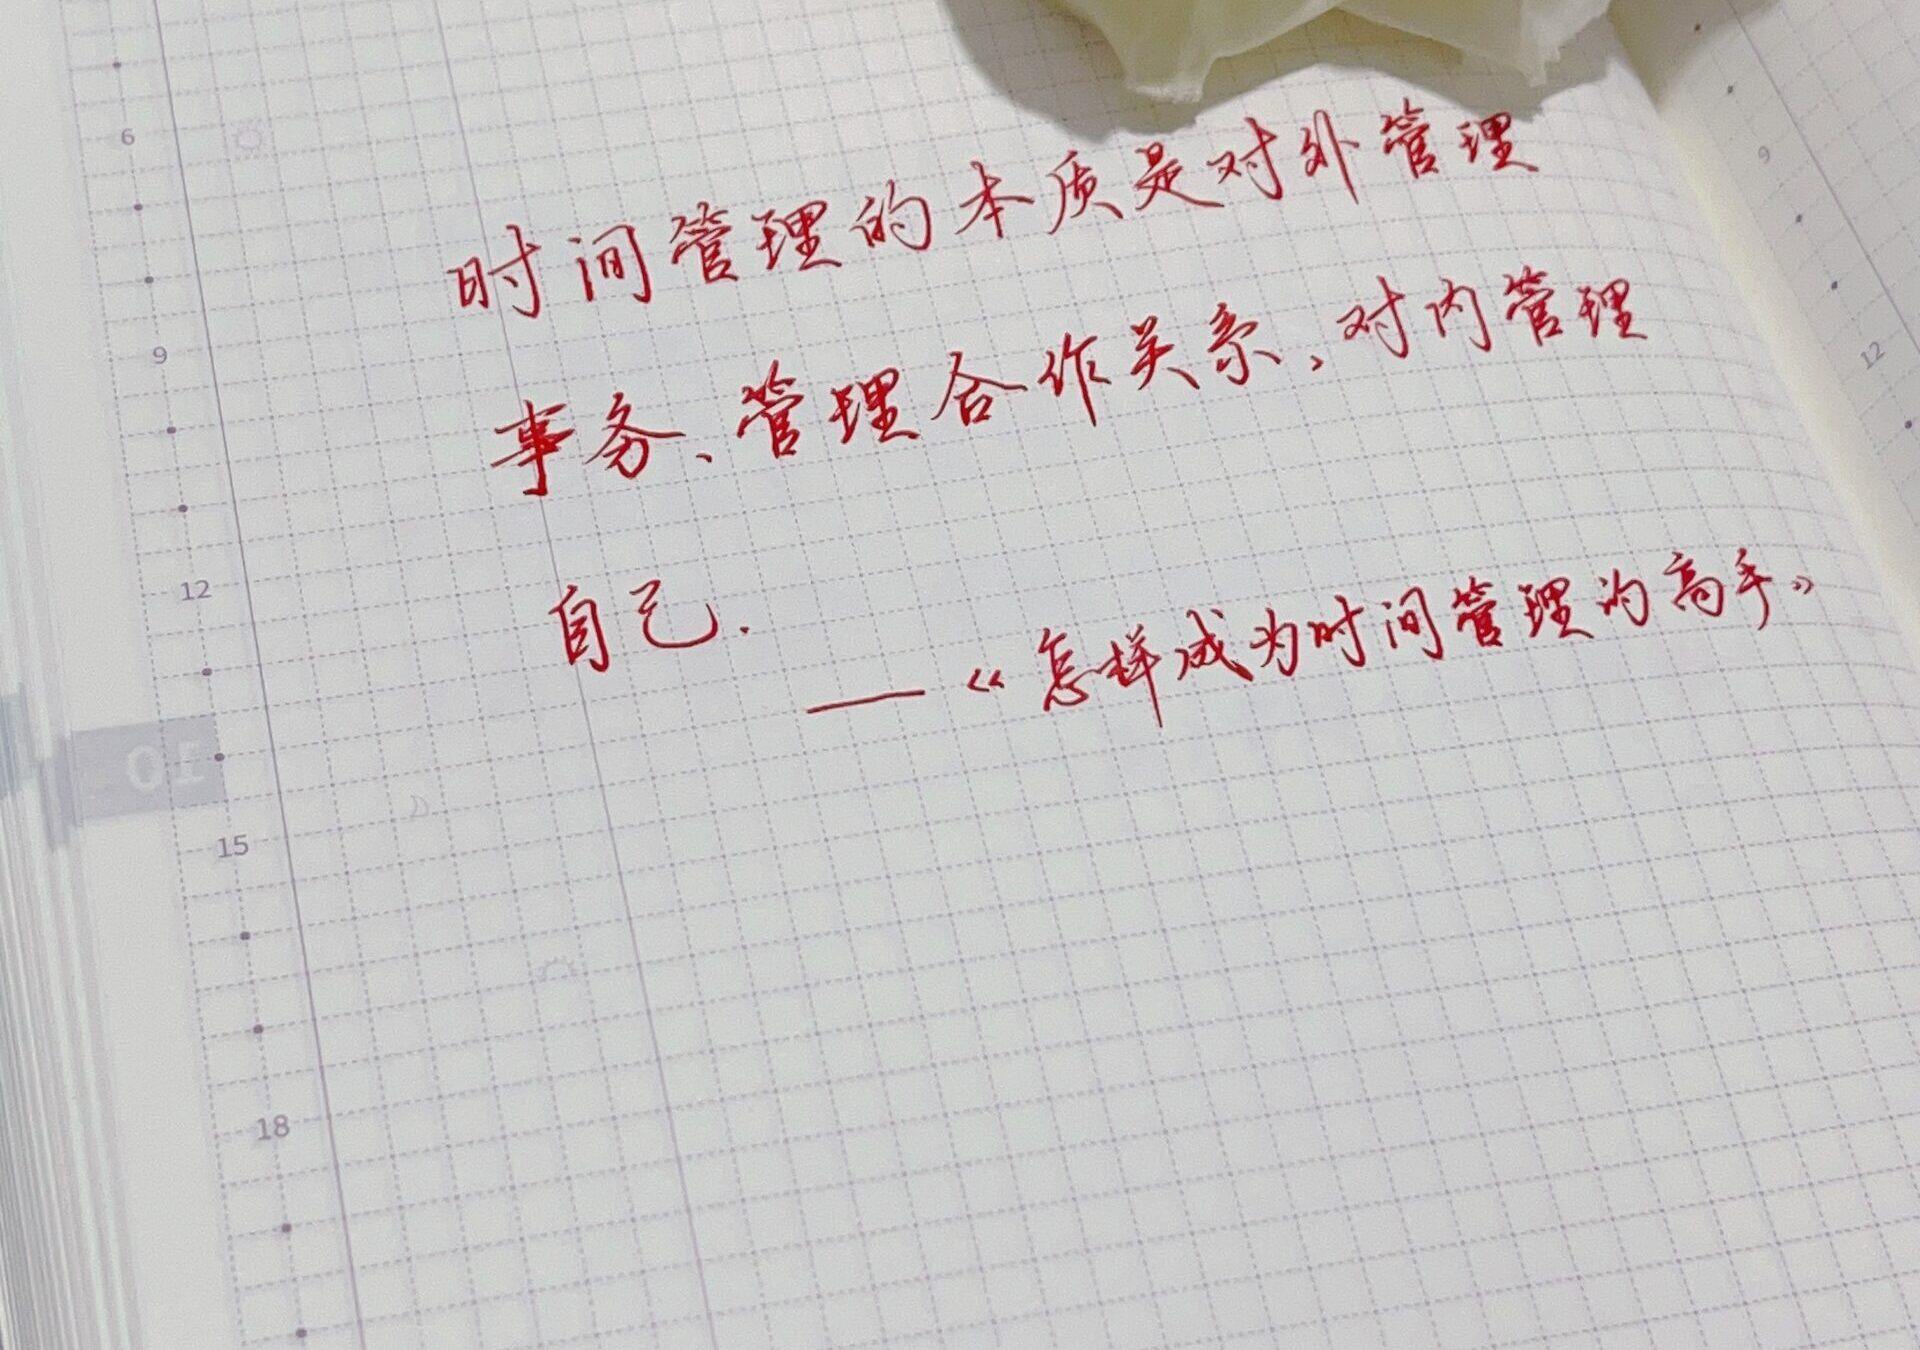 时间管理的本质是对外管理
事务、管理合作关系,对内管理
自己.
——《怎样成为时间管理的高手》
6
9
12
15
18
9
12